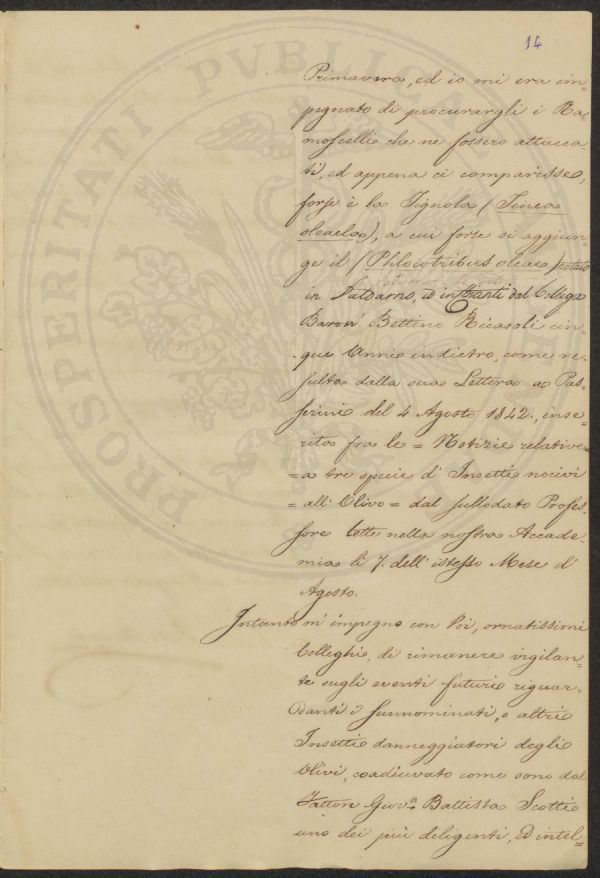 14
PROSPERITATI PVBLICAE
Primavera, ed io mi era im=
pegnato di procurargli i Ra=
moscelli che ne fossero attacca=
ti, ed appena ci comparisse,
forse è la Tignola (Tinea
oleaela), a cui forse si aggiun=
ge il (Phloiotribus oleae
in Valdarno, ed in Chianti dal Collega
Baron Bettino Ricasoli cin=
que Anni indietro, come re=
sulta dalla sua Lettera a Pas=
serini del 4 Agosto 1842., inse=
rita fra le = Notizie relative=
=a tre specie d'Insetti nocivi
=all'Olivo= dal sullodato Profes=
sore lette nella nostra Accade=
mia li 7. dell'istesso Mese d'
Agosto.
Intanto m'impegno con Voi, ornatissimi
Colleghi, di rimanere vigilan=
te sugli eventi futuri riguar=
danti i sunnominati, e altri
Insetti danneggiatori degli
Olivi, coadiuvato come sono dal
Fattore Giov. Battista Scotti
uno dei più diligenti, ed intel=